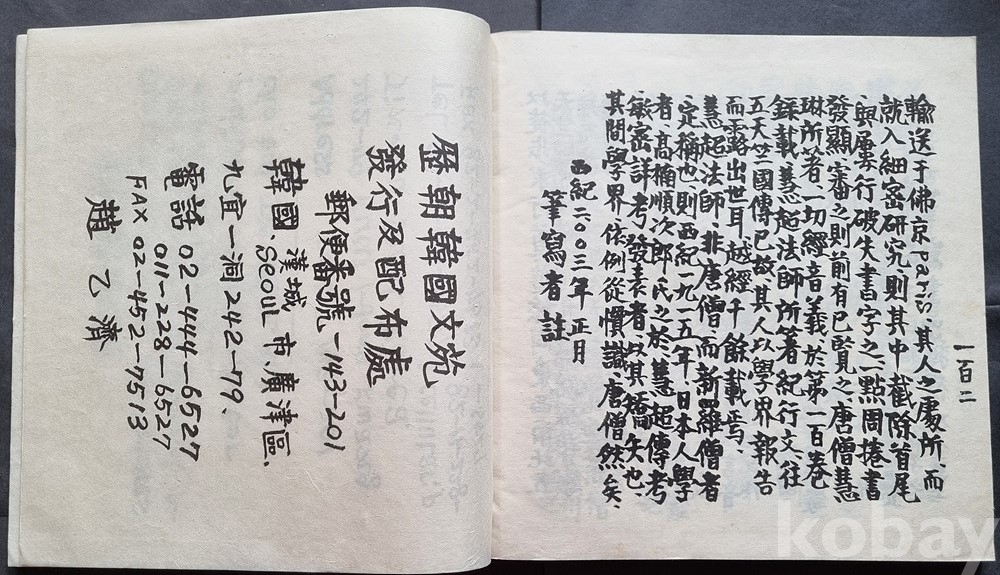 一百二
輸送于佛京Paris、其人之處所、而
就入細密研究、則其中截除首尾
與屢行破失書字之一點周捲書
發顯、審之則前有已覽之唐僧慧
琳所著、一切經音義、於第一百卷
錄載慧超法師所著紀行文、往
五天竺國傳已、故其人以學界報告
而露出世耳、越經千餘載焉、
慧超法師、非唐僧、而新羅僧者
定稱也、則西紀一九一五年、日本人學
者、高楠順次郎氏之於、慧超傳考
嚴密詳考發表者、以其矯矢也、
其間學界、依例從慣識、唐僧然矣、
西紀二〇〇三年 正月
筆寫者 註
歷朝韓國文苑
發行及配布處
郵便番號-143-201
韓國、漢城 seoul 市、廣津區、
九宜一洞242-79、
電話 02-444-6527
011-228-6527
FAX 02-452-7513
趙 乙 濟
kobay